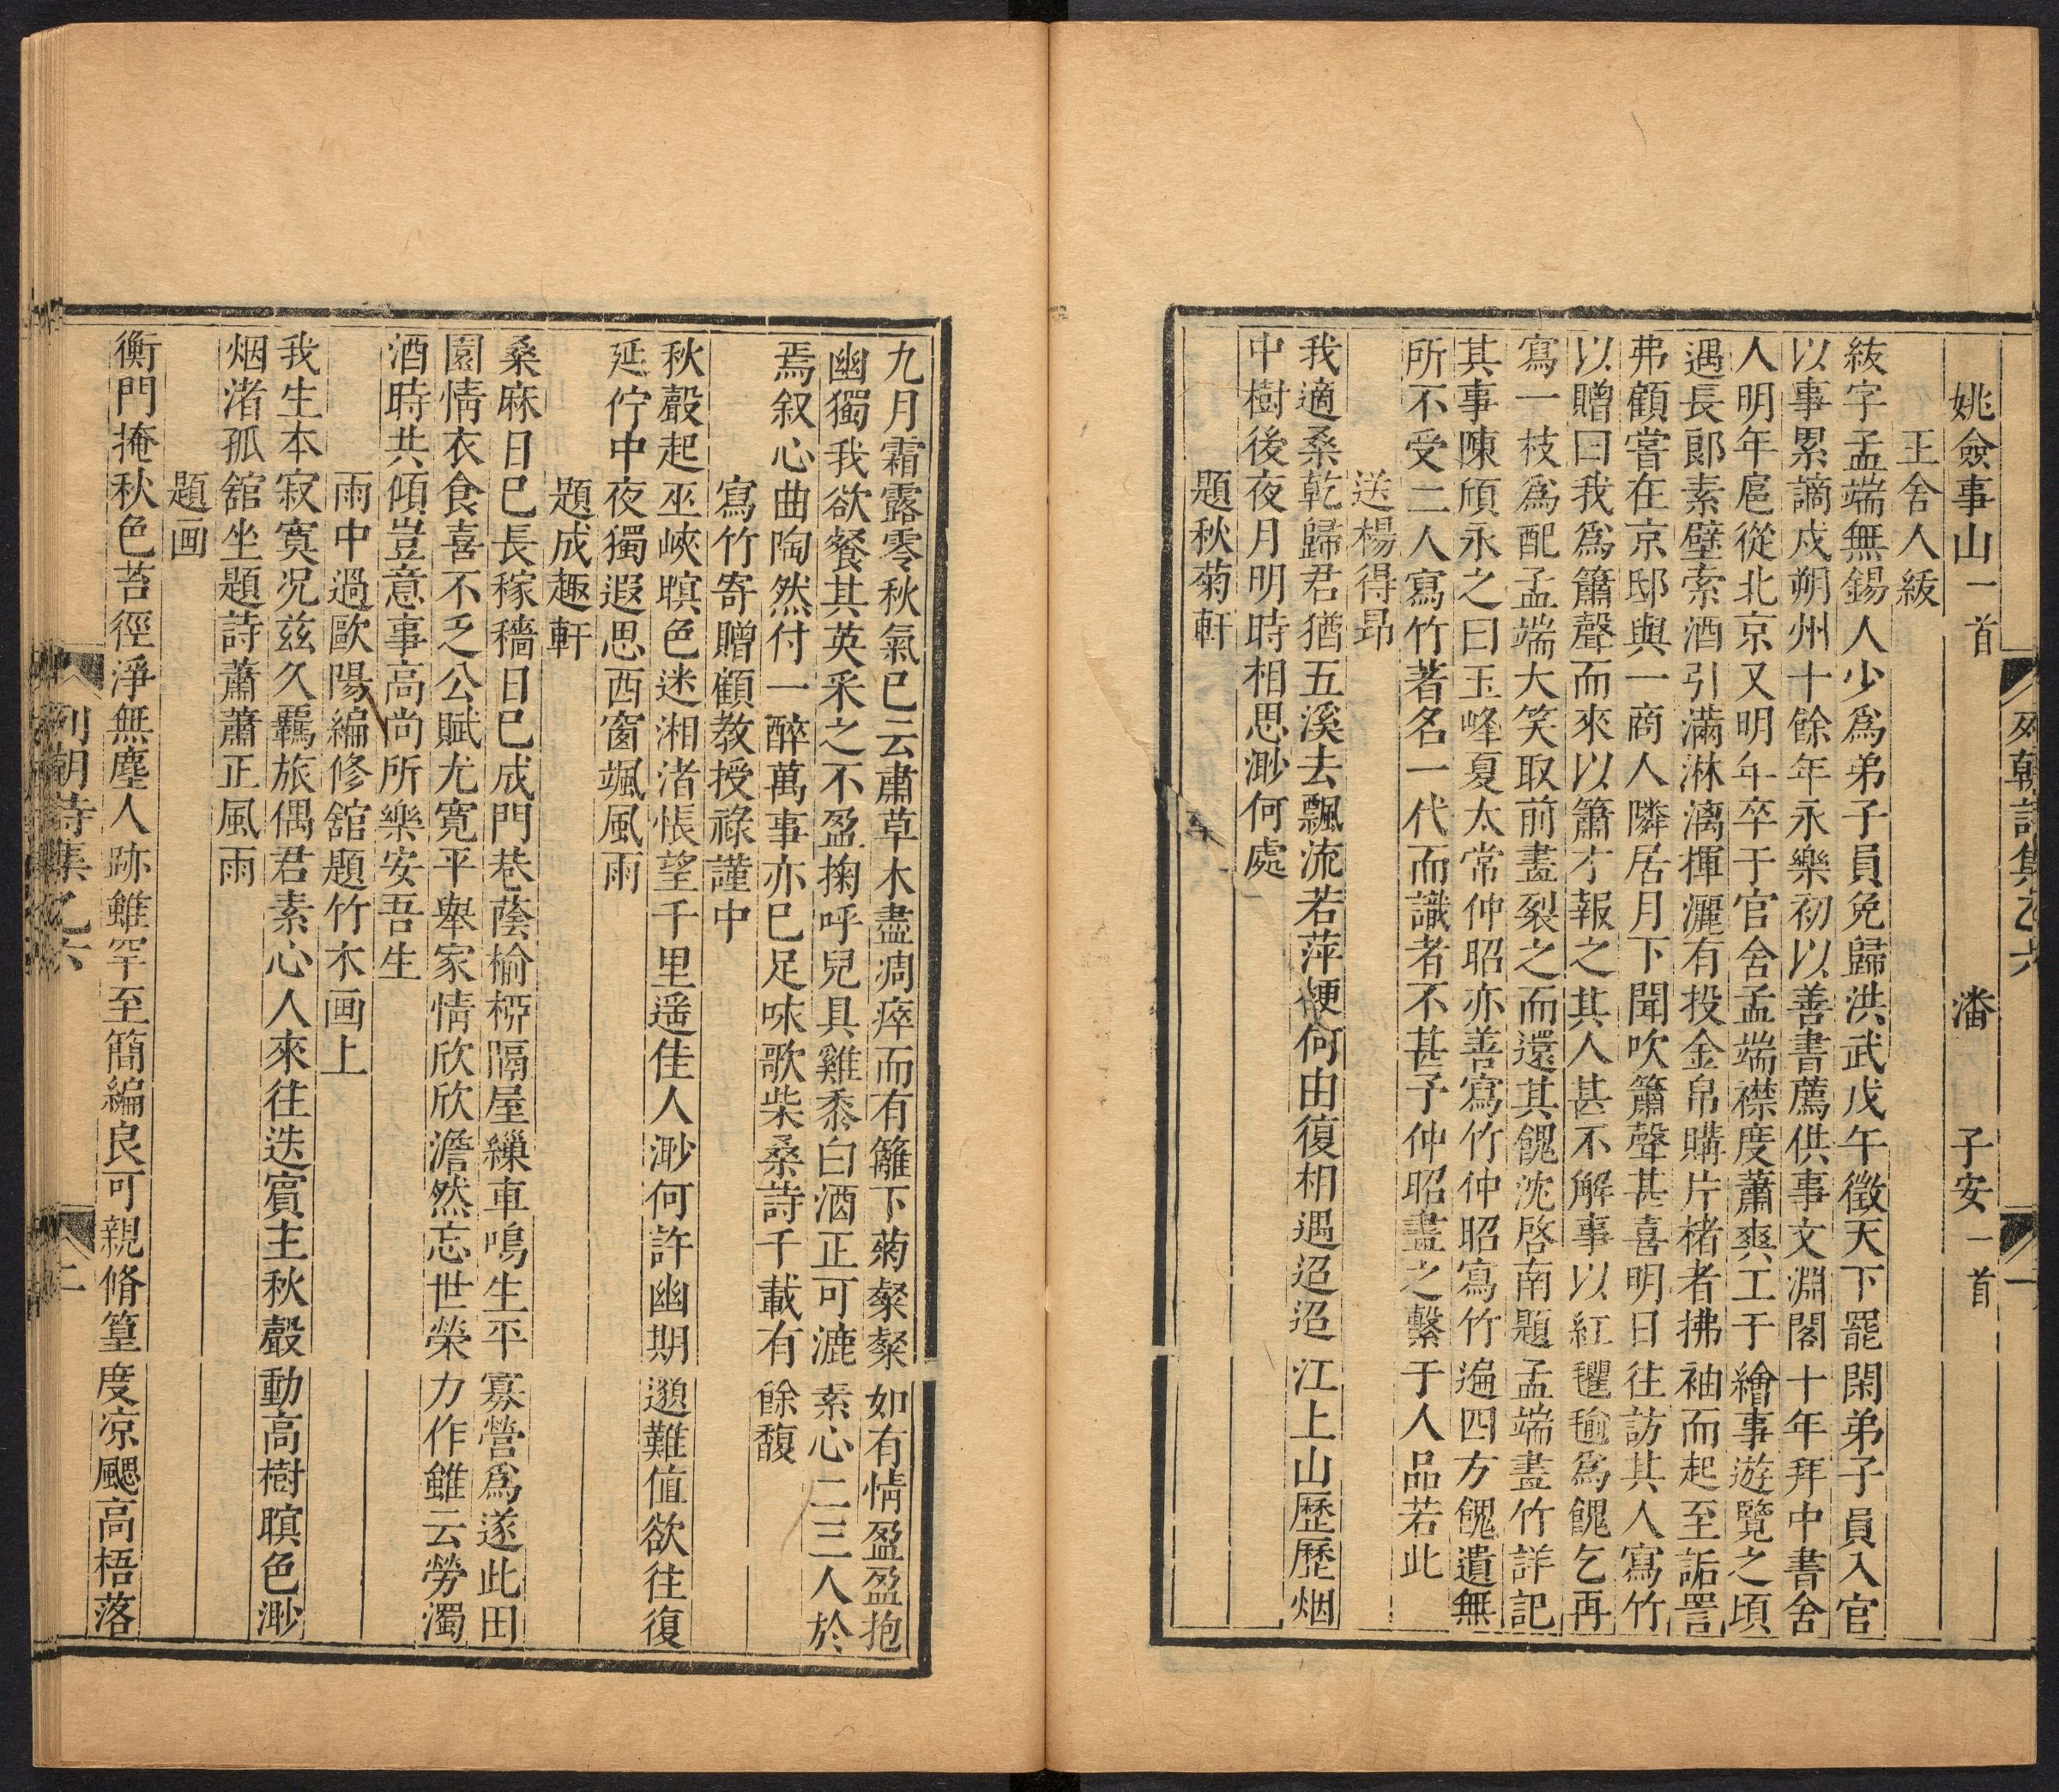 列朝詩集乙六
一
姚僉事山一首 潘子安一首
王舍人紱
紱字孟端無錫人少爲弟子員免歸洪武戊午徵天下罷閑弟子員入官
以事累謫戍朔州十餘年永樂初以善書薦供事文淵閣十年拜中書舍
人明年扈從北京又明年卒于官舍孟端襟度蕭爽工于繪事遊覽之頃
遇長郎素壁索酒引滿淋漓揮灑有投金帛購片楮者拂袖而起至詬詈
弗顧嘗在京邸與一商人隣居月下聞吹簫聲甚喜明日往訪其人寫竹
以贈曰我爲簫聲而來以簫才報之其人甚不解事以紅氍毹爲餽乞再
寫一枝爲配孟端大笑取前畫裂之而還其餽沈啓南題孟端畫竹詳記
其事陳頎永之曰玉峰夏太常仲昭亦善寫竹仲昭寫竹遍四方餽遺無
所不受二人寫竹著名一代而識者不甚予仲昭畫之繫于人品若此
送楊得昻
我適桑乾歸君猶五溪去飄流若萍梗何由復相遇迢迢江上山歷歷烟
中樹後夜月明時相思渺何處
題秋菊軒
九月霜露零秋氣已云肅草木盡凋瘁而有籬下菊粲粲如有情盈盈抱
幽獨我欲餐其英采之不盈掬呼兒具雞黍白酒正可漉素心二三人於
焉叙心曲陶然付一醉萬事亦已足咏歌柴桑詩千載有餘馥
寫竹寄贈顧教授祿謹中
秋聲起巫峽暝色迷湘渚悵望千里遥佳人渺何許幽期邈難值欲往復
延佇中夜獨遐思西窗颯風雨
題成趣軒
桑麻日已長稼穡日已成門巷蔭榆柳隔屋繅車鳴生平寡營爲遂此田
園情衣食喜不乏公賦尤寛平舉家情欣欣澹然忘世榮力作雖云勞濁
酒時共傾豈意事高尚所樂安吾生
雨中過歐陽編修舘題竹木画上
我生本寂寞况兹久羈旅偶君素心人來往迭賓主秋聲動高樹暝色渺
烟渚孤舘坐題詩蕭蕭正風雨
題画
衡門掩秋色苔徑淨無塵人跡雖罕至簡編良可親脩篁度凉颸高梧落
列朝詩集乙六
二